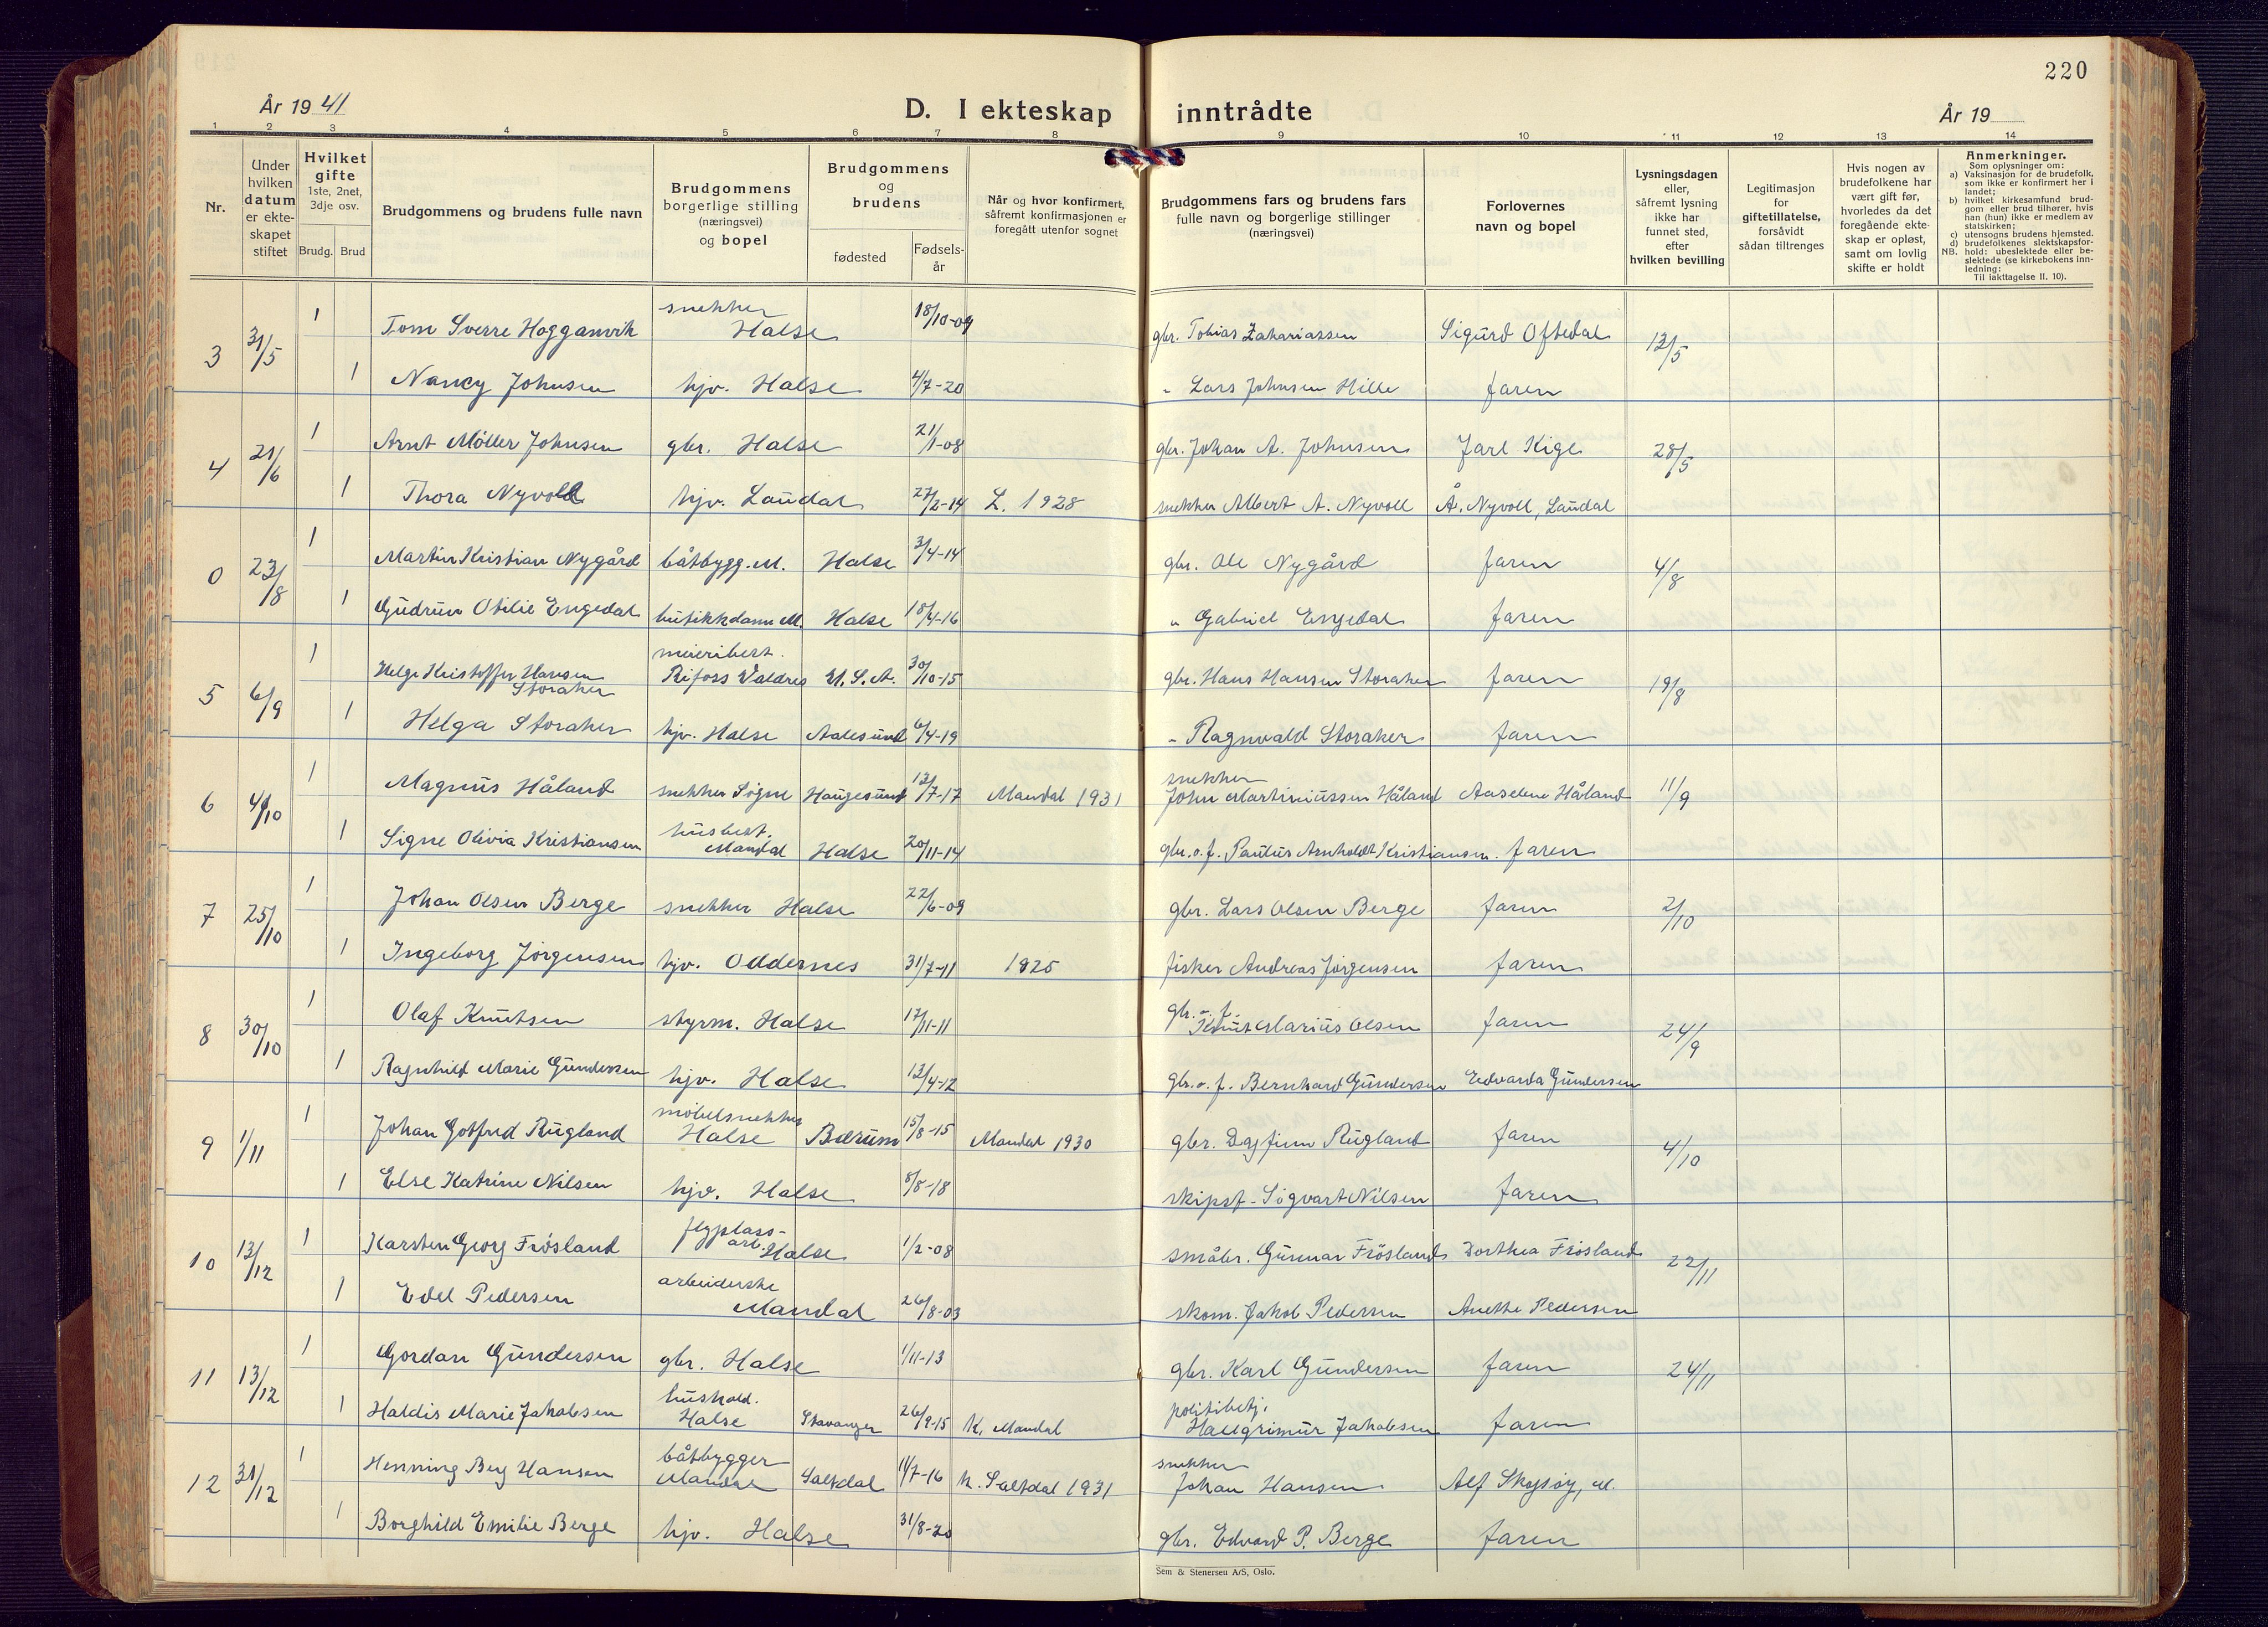 220
År 1941
D. I ekteskap inntrådte
År 19
1 2 3 4 5 6 7 8 9 10 11 12 13 14
Nr.
Under hvilken datum er ekteskapet stiftet
Hvilket gifte 1ste, 2net, 3dje osv.
Brudg. Brud
Brudgommens og brudens fulle navn
Brudgommens borgerlige stilling (næringsvei) og bopel
Brudgommens og brudens
fødested
Fødsels-år
Når og hvor konfirmert, såfremt konfirmasjonen er foregått utenfor sognet
Brudgommens fars og brudens fars fulle navn og borgerlige stillinger (næringsvei)
Forlovernes navn og bopel
Lysningsdagen eller, såfremt lysning ikke har funnet sted, efter hvilken bevilling
Legitimasjon for giftetillatelse, forsåvidt sådan tiltrenges
Hvis nogen av brudefolkene har vært gift før, hvorledes da det foregående ekteskap er opløst, samt om lovlig skifte er holdt
Anmerkninger.
Som oplysninger om:
a) Vaksinasjon for de brudefolk, som ikke er konfirmert her i landet;
b) hvilket kirkesamfund brudgom eller brud tilhører, hvis han (hun) ikke er medlem av statskirken;
c) utensogns brudens hjemsted.
d) brudefolkenes slektskapsforhold: ubeslektede eller beslektede (se kirkebokens innledning:
NB.
Til iakttagelse II. 10).
3 31/5 1 Tom Sverre Hogganvik snekker Halse 18/10-09 gbr. Tobias Zakariassen Sigurd Oftedal 12/5
1 Nancy Johnsen hjv. Halse 4/7-20 " Lars Johnsen Hille faren
4 21/6 1 Arnt Møller Johnsen gbr. Halse 21/1-08 gbr. Johan A. Johnsen Jarl Kige 28/5
1 Thora Nyvoll hjv. Laudal 27/2-14 L. 1928 snekker Albert A. Nyvoll Å. Nyvoll, Laudal
0 23/8 1 Martin Kristian Nygård båtbygg. M. Halse 3/4-14 gbr. Ole Nygård faren 4/8
1 Gudrun Otilie Engedal butikkdame M. Halse 18/4-16 " Gabriel Engedal faren
5 6/9 1 Helge Kristoffer Hansen Storaker meieribest. Rifoss Valdres U.S.A. 30/10-15 gbr. Hans Hansen Storaker faren 19/8
1 Helga Storaker hjv. Halse Aalesund 6/4-19 " Ragnvald Storaker faren
6 4/10 1 Magnus Håland snekker Søgne Haugesund 13/7-17 Mandal 1931 snekker John Martiniussen Håland Aaselene Håland 11/9
1 Signe Olivia Kristiansen husbest. Mandal Halse 20/11-14 gbr. o. f. Paulus Arnholdt Kristiansen. faren
7 25/10 1 Johan Olsen Berge snekker Halse 22/6-09 gbr. Lars Olsen Berge faren 2/10
1 Ingeborg Jørgensen hjv. Oddernes 31/7-11 1925 fisker Andreas Jørgensen faren
8 30/10 1 Olaf Knutsen styrm. Halse 17/11-11 gbr. o. f. Knut Marius Olsen faren 24/9
1 Ragnhild Marie Gundersen hjv. Halse 13/4-12 gbr. o. f. Bernhard Gundersen Edvarda Gundersen
9 1/11 1 Johan Gotfred Rugland møbelsnekker Halse Bærum 15/8-15 Mandal 1930 gbr. Dagfinn Rugland faren 4/10
1 Else Katrine Nilsen hjv. Halse 8/8-18 skipsf. Sigvart Nilsen faren
10 13/12 1 Karsten Georg Frøsland flyplass-arb. Halse 1/2-08 småbr. Gunnar Frøsland Dorthea Frøsland 22/11
1 Edel Pedersen arbeiderske Mandal 26/8-03 skom. Jakob Pedersen Anethe Pedersen
11 13/12 1 Gordan Gundersen gbr. Halse 1/11-13 gbr. Karl Gundersen faren 24/11
1 Haldis Marie Jakobsen hushold. Halse Stavanger 26/9-15 K. Mandal politibetj. Hallgrimur Jakobsen faren
12 31/12 1 Henning Berg Hansen båtbygger Mandal Saltdal 11/7-16 k. Saltdal 1931 snekker Johan Hansen Alf Skogsøy, M.
1 Borghild Emilie Berge hjv. Halse 31/8-20 gbr. Edvard P. Berge faren
Sem & Stenersen A/S, Oslo.